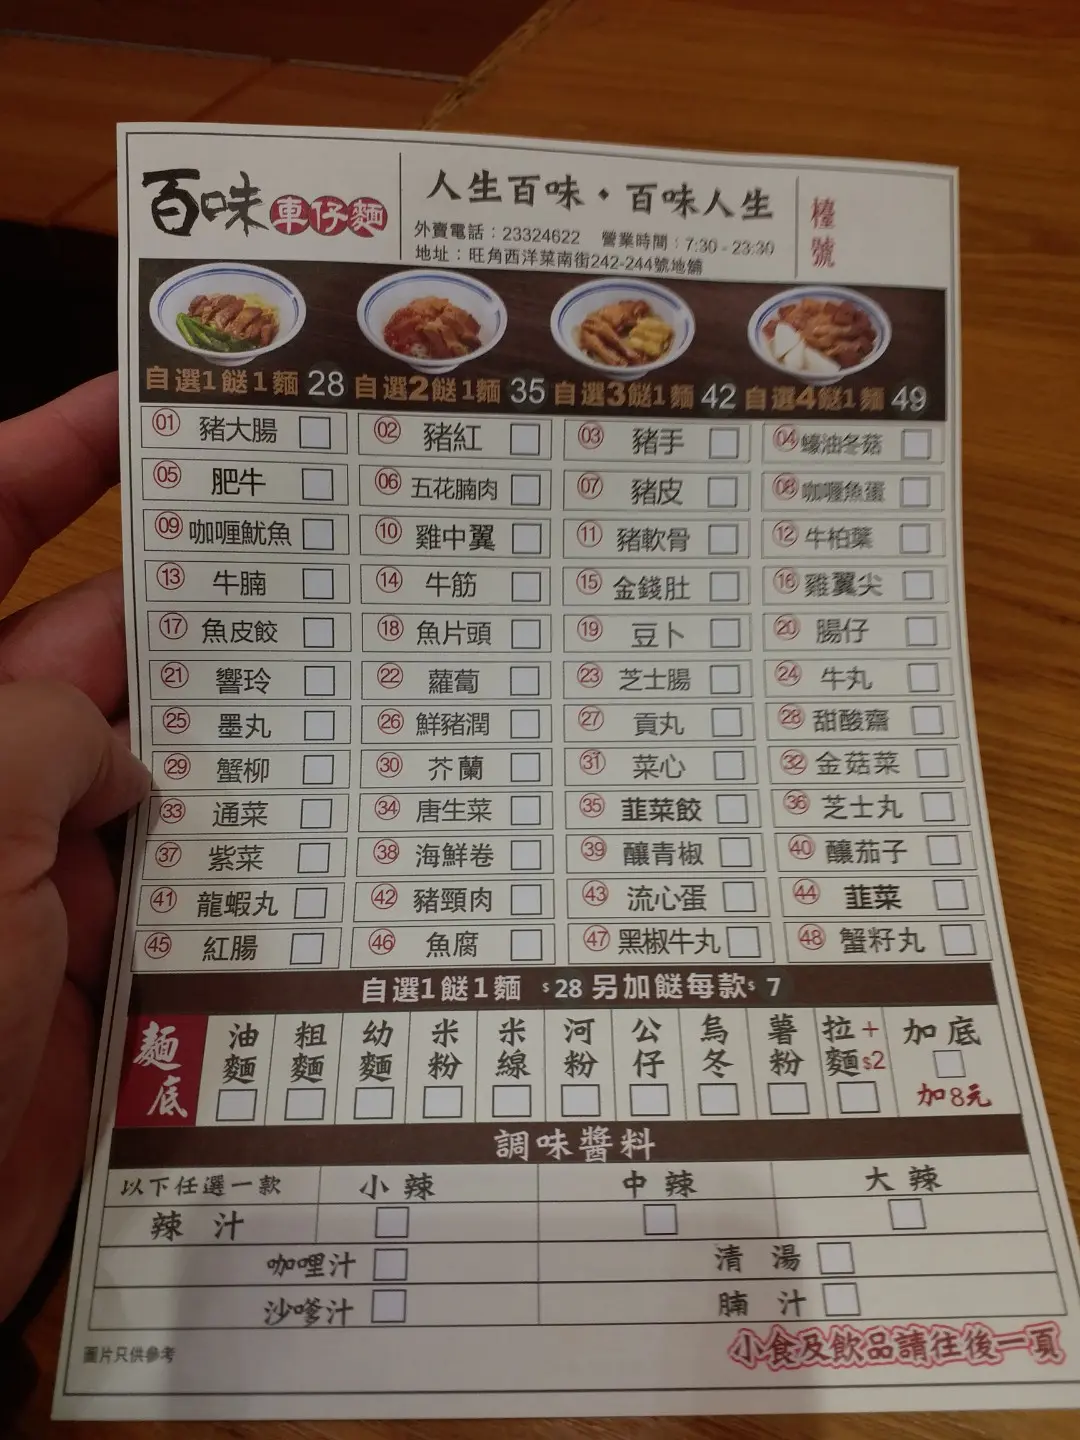 百味 車仔麵
人生百味・百味人生
外賣電話：23324622 營業時間：7:30 - 23:30
地址：旺角西洋菜南街242-244號地舖
檯號
自選1餸1麵 28 自選2餸1麵 35 自選3餸1麵 42 自選4餸1麵 49
01 豬大腸 02 豬紅 03 豬手 04 蠔油冬菇
05 肥牛 06 五花腩肉 07 豬皮 08 咖喱魚蛋
09 咖喱魷魚 10 雞中翼 11 豬軟骨 12 牛柏葉
13 牛腩 14 牛筋 15 金錢肚 16 雞翼尖
17 魚皮餃 18 魚片頭 19 豆卜 20 腸仔
21 響玲 22 蘿蔔 23 芝士腸 24 牛丸
25 墨丸 26 鮮豬潤 27 貢丸 28 甜酸齋
29 蟹柳 30 芥蘭 31 菜心 32 金菇菜
33 通菜 34 唐生菜 35 韮菜餃 36 芝士丸
37 紫菜 38 海鮮卷 39 釀青椒 40 釀茄子
41 龍蝦丸 42 豬頸肉 43 流心蛋 44 韮菜
45 紅腸 46 魚腐 47 黑椒牛丸 48 蟹籽丸
自選1餸1麵 $28 另加餸每款$ 7
麵底 油麵 粗麵 幼麵 米粉 米線 河粉 公仔 烏冬 薯粉 拉麵+$2 加底
加8元
調味醬料
以下任選一款 小辣 中辣 大辣
辣汁
咖哩汁 清湯
沙嗲汁 腩汁
小食及飲品請往後一頁
圖片只供參考